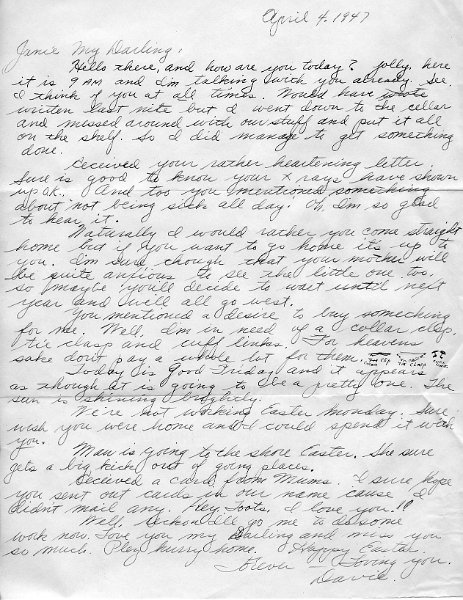 April 4, 1947
Janie My Darling,
Hello there, and how are you today? Golly, here
it is 9 AM and I'm talking with you already. See
I think of you at all times. Would have wrote
written last nite but I went down to the cellar
and messed around with our stuff and put it all
on the shelf. So I did manage to get something
done.
Received your rather heartening letter.
Sure is good to know your x rays have shown
up ok. And too you mentioned something
about not being sick all day. I'm so glad
to hear it.
Naturally I would rather you come straight
home but if you want to go home it's up to
you. I'm sure though that your mother will
be quite anxious to see the little one too.
so maybe you'll decide to wait until next
year and we'll all go west.
You mentioned a desire to buy something
for me. Well, I'm in need of a collar clasp
tie clasp and cuff links. For heavens
sake don't pay a whole lot for them.
Today is Good Friday and it appears
as though it is going to be a pretty one. The
sun is shining brightly.
We're not working Easter Monday. Sure
wish you were home and I could spend it with
you.
Mam is going to the shore Easter. She sure
gets a big kick out of going places.
Received a card from Mums. I sure hope
you sent out cards in our name cause I
didn't mail any. Hey Toots, I love you!!
Well, reckon I'll go me to do some
work now. Love you my Darling and miss you
so much. Please hurry home. Happy Easter
Forever Loving you.
David